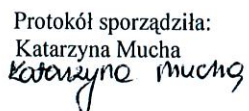 Protokół sporządziła:
Katarzyna Mucha
Katarzyna Mucha